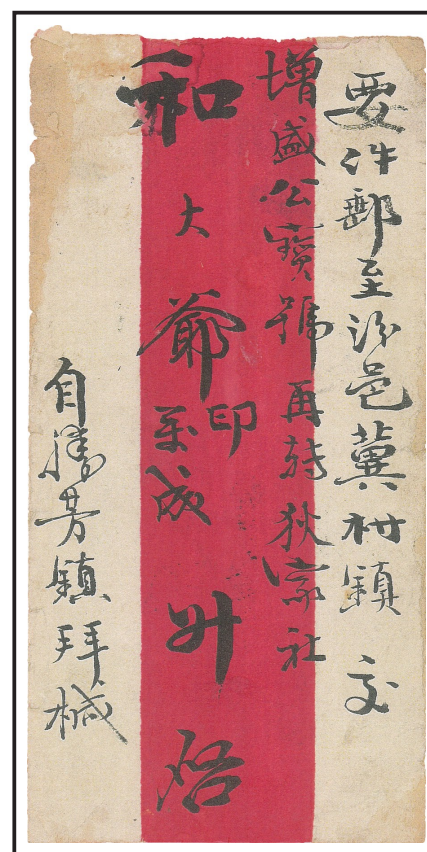 要件郵至汾邑冀村鎮交
增盛公寶號再轉狄家社
和大爺印萬成升啓
自勝芳鎮拜械